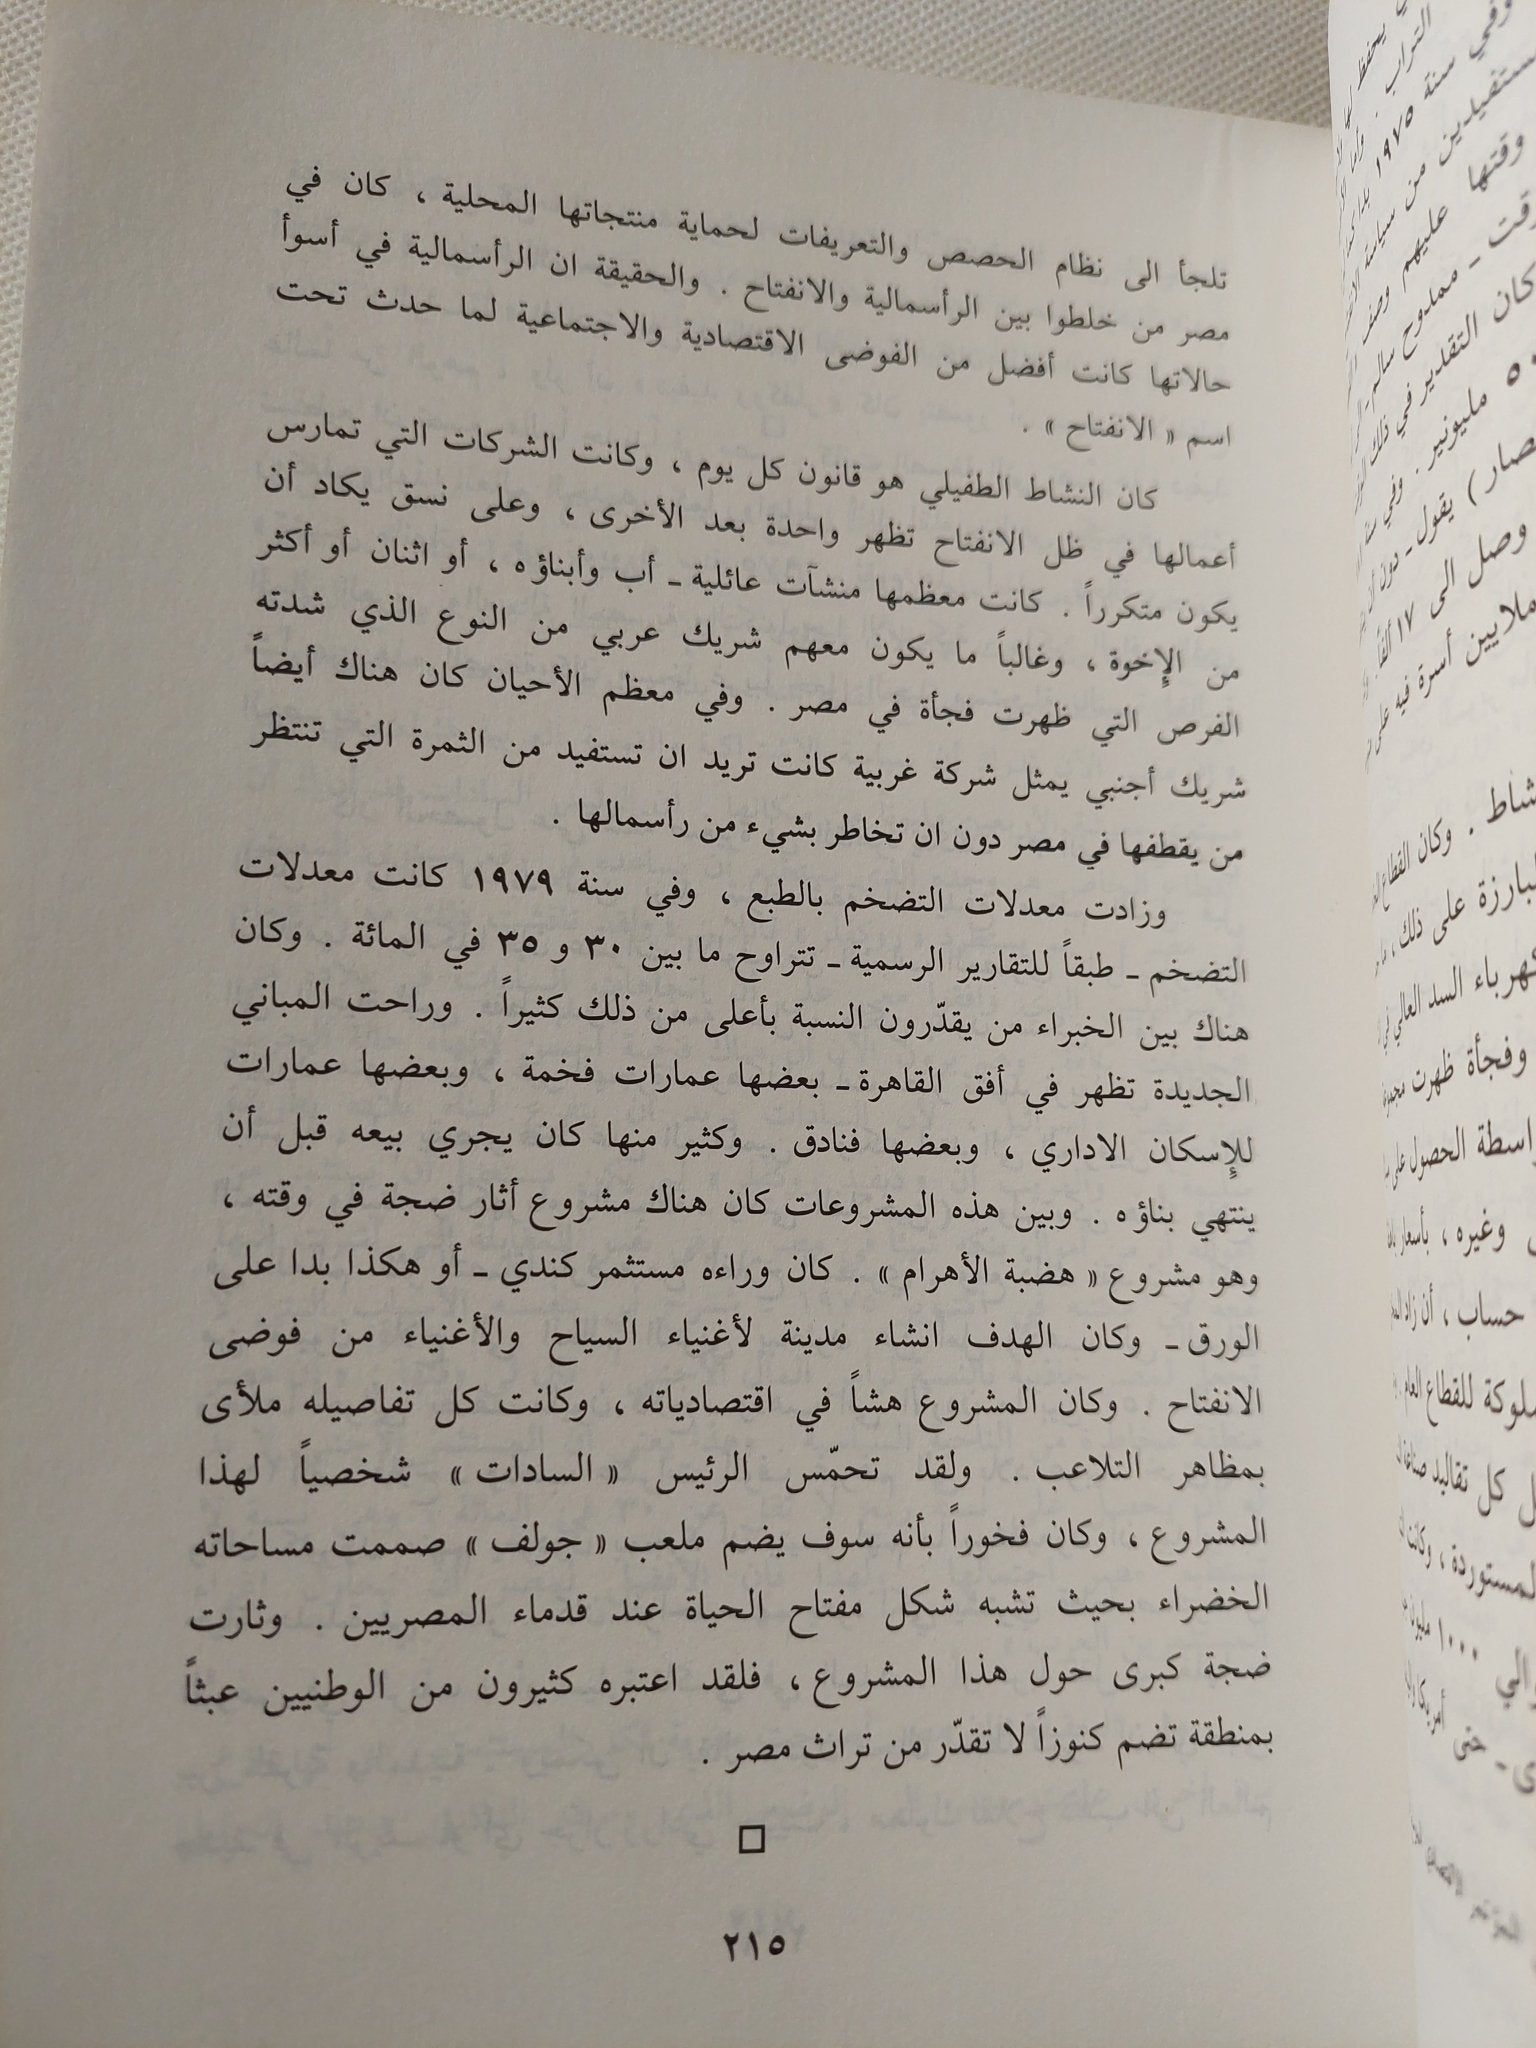 تلجأ الى نظام الحصص والتعريفات لحماية منتجاتها المحلية ، كان في
مصر من خلطوا بين الرأسمالية والانفتاح . والحقيقة ان الرأسمالية في أسوأ
حالاتها كانت أفضل من الفوضى الاقتصادية والاجتماعية لما حدث تحت
اسم « الانفتاح » .
كان النشاط الطفيلي هو قانون كل يوم ، وكانت الشركات التي تمارس
أعمالها في ظل الانفتاح تظهر واحدة بعد الأخرى ، وعلى نسق يكاد أن
يكون متكرراً . كانت معظمها منشآت عائلية ـ أب وأبناؤه ، أو اثنان أو أكثر
من الإخوة ، وغالباً ما يكون معهم شريك عربي من النوع الذي شدته
الفرص التي ظهرت فجأة في مصر . وفي معظم الأحيان كان هناك أيضاً
شريك أجنبي يمثل شركة غربية كانت تريد ان تستفيد من الثمرة التي تنتظر
من يقطفها في مصر دون ان تخاطر بشيء من رأسمالها .
وزادت معدلات التضخم بالطبع ، وفي سنة ١٩٧٩ كانت معدلات
التضخم ـ طبقاً للتقارير الرسمية ـ تتراوح ما بين ٣٠ و ٣٥ في المائة . وكان
هناك بين الخبراء من يقدّرون النسبة بأعلى من ذلك كثيراً . وراحت المباني
الجديدة تظهر في أفق القاهرة ـ بعضها عمارات فخمة ، وبعضها عمارات
للإسكان الاداري ، وبعضها فنادق . وكثير منها كان يجري بيعه قبل أن
ينتهي بناؤه . وبين هذه المشروعات كان هناك مشروع أثار ضجة في وقته ،
وهو مشروع « هضبة الأهرام » . كان وراءه مستثمر كندي ـ أو هكذا بدا على
الورق ـ وكان الهدف انشاء مدينة لأغنياء السياح والأغنياء من فوضى
الانفتاح . وكان المشروع هشاً في اقتصادياته ، وكانت كل تفاصيله ملأى
بمظاهر التلاعب . ولقد تحمّس الرئيس « السادات » شخصياً لهذا
المشروع ، وكان فخوراً بأنه سوف يضم ملعب « جولف » صممت مساحاته
الخضراء بحيث تشبه شكل مفتاح الحياة عند قدماء المصريين . وثارت
ضجة كبرى حول هذا المشروع ، فلقد اعتبره كثيرون من الوطنيين عبثاً
بمنطقة تضم كنوزاً لا تقدّر من تراث مصر .
٢١٥
وفي سنة ١٩٧٥
وقتها عليهم وصف
ممدوح سالم
كان التقدير في ذلك
مليونير . وفي
يقول ـ دون
وصل الى ١٧ ألفاً
ملايين أسرة فيه على
. وكان القطاع
على ذلك ،
السد العالي
وفجأة ظهرت
الحصول على
وغيره ، بأسعار
حساب ، أن
للقطاع العام
كل تقاليد
المستوردة ، وكانت
١٠٠٠
حتى